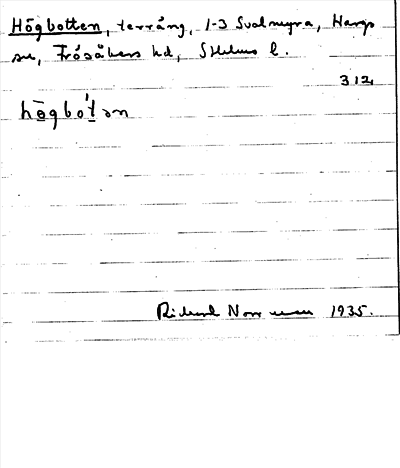 Högbotten, terräng, 1-3 Svalmyra, Hargs
sn, Frösåkers hd, Sthlms l.
312,
högbo't ən
Rickard Norrman 1935.